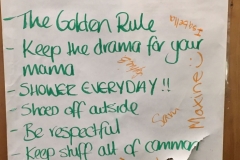 - The Golden Rule
- Keep the drama for your
mama
- SHOWER EVERYDAY !!
- Shoes off outside
- Be respectful
- Keep stuff out of common
Sam
Maxine